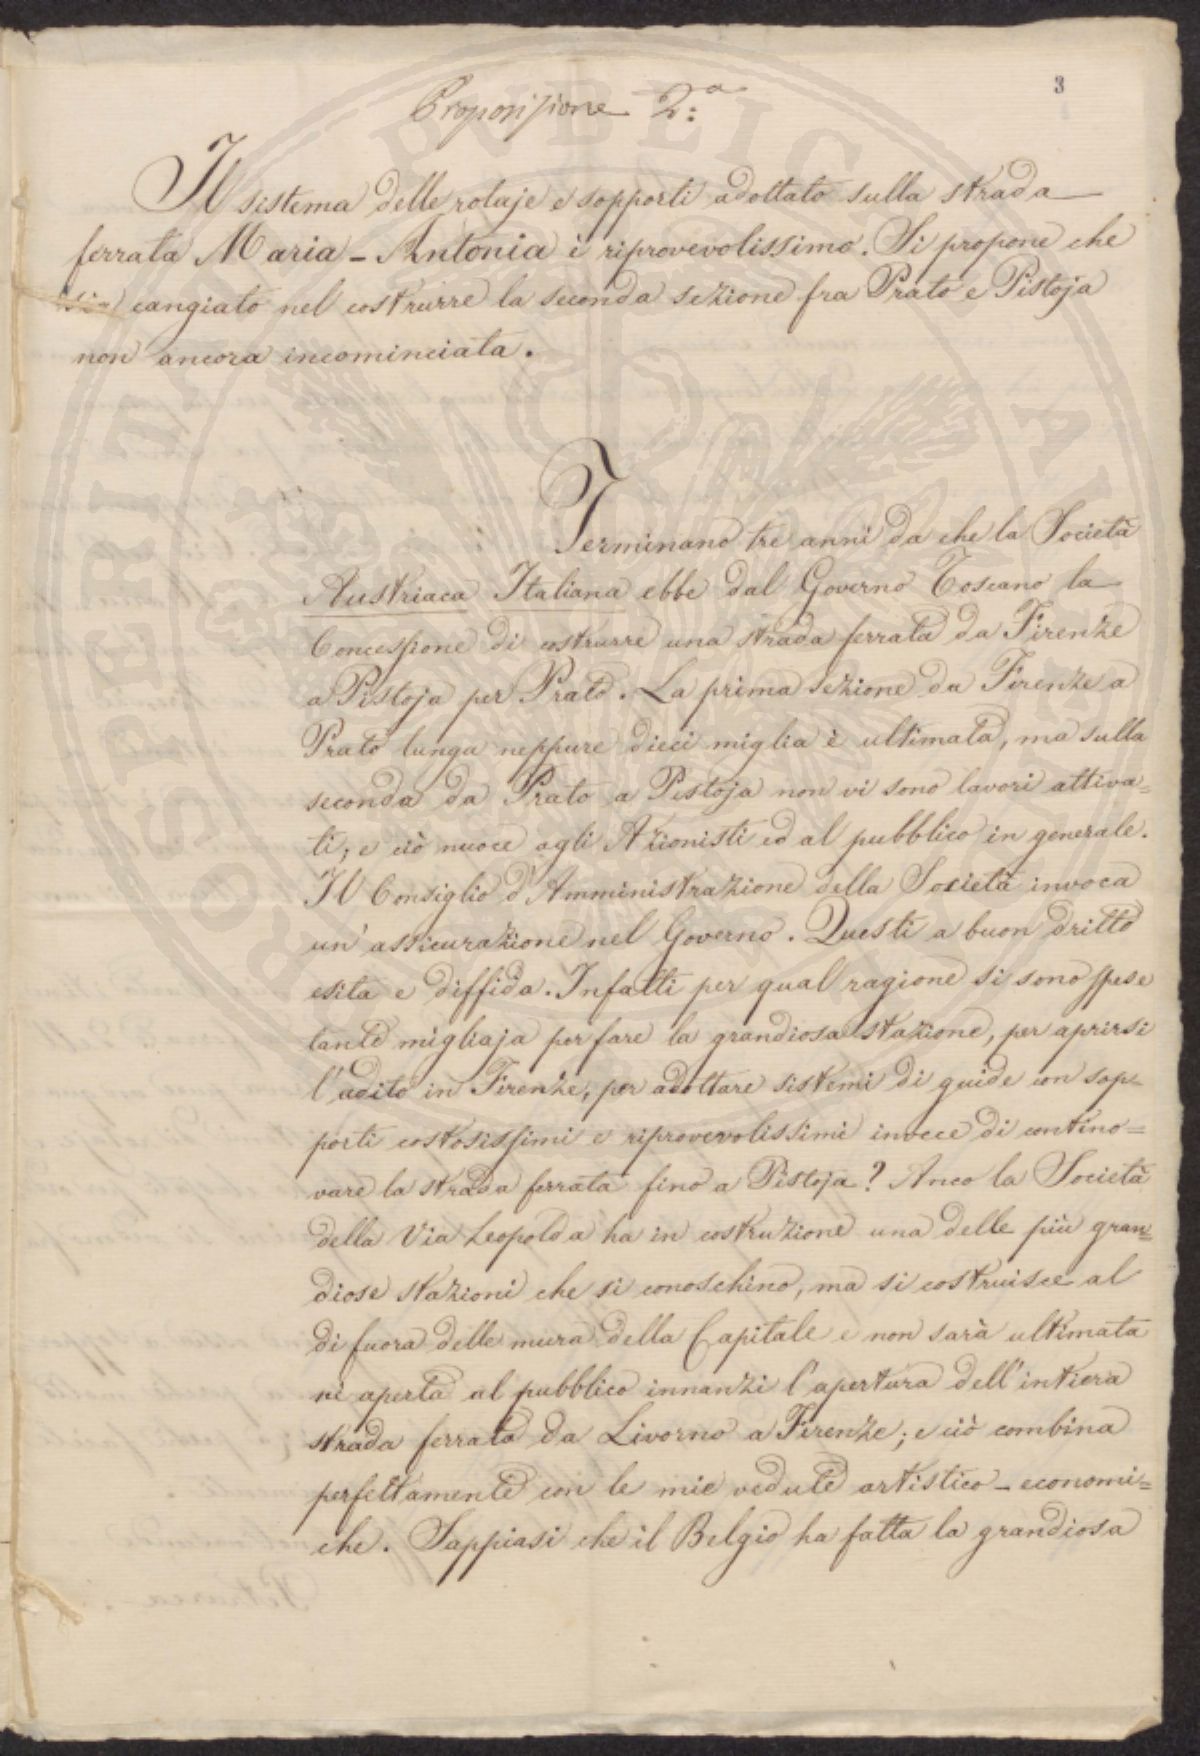 3
Proposizione 2:a
Il sistema delle rotaje e sopporti adottato sulla strada
ferrata Maria-Antonia è riprovevolissimo. Si propone che
sia cangiato nel costrurre la seconda sezione fra Prato e Pistoja
non ancora incominciata.
Terminano tre anni da che la Società
Austriaca Italiana ebbe dal Governo Toscano la
Concessione di costrurre una strada ferrata da Firenze
a Pistoja per Prato. La prima sezione da Firenze a
Prato lunga neppure dieci miglia è ultimata, ma sulla
seconda da Prato a Pistoja non vi sono lavori attiva=
ti; e ciò nuoce agli Azionisti ed al pubblico in generale.
Il Consiglio d'Amministrazione della Società invoca
un'assicurazione nel Governo. Questi a buon dritto
esita e diffida. Infatti per qual ragione si sono spese
tante migliaja per fare la grandiosa stazione, per aprirsi
l'adito in Firenze, per adottare sistemi di guide con sop=
porti costosissimi e riprovevolissimi invece di contino=
vare la strada ferrata fino a Pistoja? Anco la Società
della Via Leopolda ha in costruzione una delle più gran=
diose stazioni che si conoschino, ma si costruisce al
di fuora delle mura della Capitale e non sarà ultimata
nè aperta al pubblico innanzi l'apertura dell'intiera
strada ferrata da Livorno a Firenze; e ciò combina
perfettamente con le mie vedute artistico-economi=
che. Sappiasi che il Belgio ha fatta la grandiosa